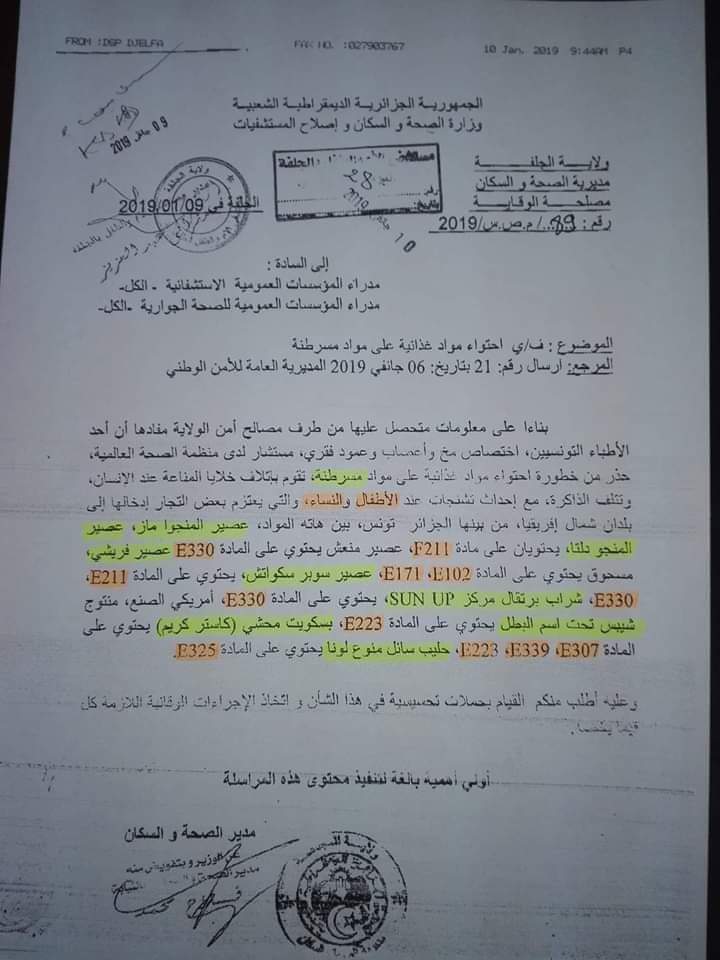 FROM :DSP DJELFA FAX NO. :027903767 10 Jan. 2019 9:44AM P4
الجمهورية الجزائرية الديمقراطية الشعبية
وزارة الصحة و السكان و إصلاح المستشفيات
ولاية الجلفة
مديرية الصحة و السكان
مصلحة الوقاية
رقم : 89/ م.ص.س/2019
الجلفة في 2019/01/09
09 جانفي 2019
28
10 جانفي 2019
إلى السادة :
مدراء المؤسسات العمومية الاستشفائية -الكل-
مدراء المؤسسات العمومية للصحة الجوارية -الكل-
الموضوع : ف/ي احتواء مواد غذائية على مواد مسرطنة
المرجع: ارسال رقم: 21 بتاريخ: 06 جانفي 2019 المديرية العامة للأمن الوطني
بناءا على معلومات متحصل عليها من طرف مصالح أمن الولاية مفادها أن أحد
الأطباء التونسيين، اختصاص مخ وأعصاب وعمود فقري، مستشار لدى منظمة الصحة العالمية،
حذر من خطورة احتواء مواد غذائية على مواد مسرطنة، تقوم بإتلاف خلايا المناعة عند الإنسان،
وتتلف الذاكرة، مع إحداث تشنجات عند الأطفال والنساء، والتي يعتزم بعض التجار إدخالها إلى
بلدان شمال إفريقيا، من بينها الجزائر تونس، بين هاته المواد، عصير المنجوا ماز، عصير
المنجو دلتا، يحتويان على مادة F211، عصير منعش يحتوي على المادة E330 عصير فريشي،
مسحوق يحتوي على المادة E102، E171، عصير سوبر سكواتش، يحتوي على المادة E211،
E330، شراب برتقال مركز SUN UP، يحتوي على المادة E330، أمريكي الصنع، منتوج
شيبس تحت اسم البطل يحتوي على المادة E223، بسكويت محشي (كاستر كريم) يحتوي على
المادة E307، E339، E223، حليب سائل منوع لونا يحتوي على المادة E325.
وعليه أطلب منكم القيام بحملات تحسيسية في هذا الشأن و اتخاذ الإجراءات الوقائية اللازمة كل
فيما يخصه.
أولي أهمية بالغة لتنفيذ محتوى هذه المراسلة
مدير الصحة و السكان
عن الوزير و بتفويض منه